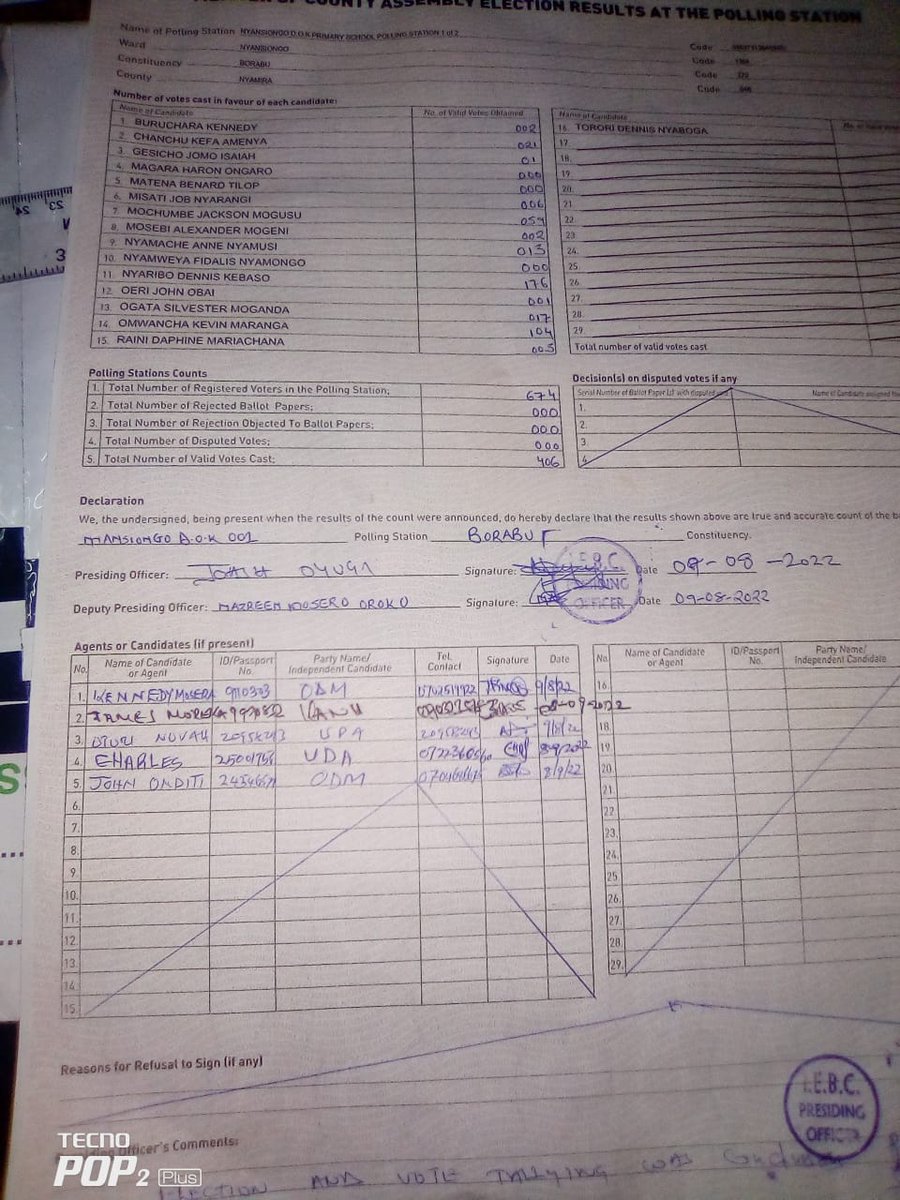 OF COUNTY ASSEMBLY ELECTION RESULTS AT THE POLLING STATION
Name of Polling Station NYANSIONGO D.O.K PRIMARY SCHOOL POLLING STATION 1 of 2
Code
Ward NYANSIONGO
Code
Constituency BORABU
Code
County NYAMIRA
Code
Number of votes cast in favour of each candidate:
Name of Candidate No. of Valid Votes Obtained
1. BURUCHARA KENNEDY 002
2. CHANCHU KEFA AMENYA 021
3. GESICHO JOMO ISAIAH 01
4. MAGARA HARON ONGARO 000
5. MATENA BENARD TILOP 000
6. MISATI JOB NYARANGI 006
7. MOCHUMBE JACKSON MOGUSU 059
8. MOSEBI ALEXANDER MOGENI 002
9. NYAMACHE ANNE NYAMUSI 013
10. NYAMWEYA FIDALIS NYAMONGO 000
11. NYARIBO DENNIS KEBASO 176
12. OERI JOHN OBAI 001
13. OGATA SILVESTER MOGANDA 017
14. OMWANCHA KEVIN MARANGA 104
15. RAINI DAPHINE MARIACHANA 003
Name of Candidate
16. TORORI DENNIS NYABOGA
17.
18.
19.
20.
21.
22.
23.
24.
25.
26.
27.
28.
29.
Total number of valid votes cast
Polling Stations Counts
1. Total Number of Registered Voters in the Polling Station; 674
2. Total Number of Rejected Ballot Papers; 000
3. Total Number of Rejection Objected To Ballot Papers; 000
4. Total Number of Disputed Votes; 000
5. Total Number of Valid Votes Cast; 406
Decision(s) on disputed votes if any
Serial Number of Ballot Paper with disputed Name of Candidate assigned
1.
2.
3.
4.
Declaration
We, the undersigned, being present when the results of the count were announced, do hereby declare that the results shown above are true and accurate count of the
D.O.K 001 Polling Station BORABU Constituency.
Presiding Officer: Signature: Date 09-08-2022
Deputy Presiding Officer: Signature: Date 09-08-2022
I.E.B.C.
OFFICER
Agents or Candidates (if present)
No. Name of Candidate or Agent ID/Passport No. Party Name/ Independent Candidate Tel. Contact Signature Date
1. KENNEDY ODM 9/8/22
2. JAMES KANU
3. NOVAH UPA 9/8/22
4. CHARLES UDA 8/9/2022
5. JOHN ONDITI ODM 8/9/22
6.
7.
8.
9.
10.
11.
12.
13.
14.
15.
No. Name of Candidate or Agent ID/Passport No. Party Name/ Independent Candidate
16.
18
19.
20.
21.
22.
23.
24.
25.
26.
27.
28.
29.
Reasons for Refusal to Sign (if any)
I.E.B.C.
PRESIDING
OFFICER
Officer's Comments:
ELECTION AND VOTE TALLYING WAS
TECNO
POP 2 Plus